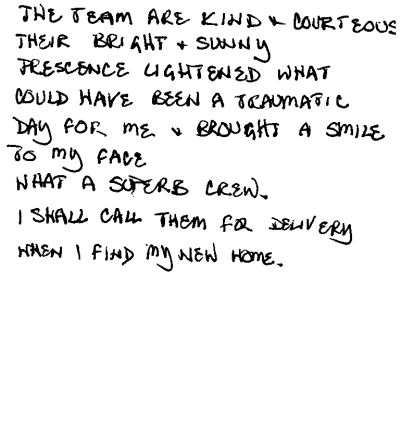 THE TEAM ARE KIND & COURTEOUS
THEIR BRIGHT & SUNNY
PRESCENCE LIGHTENED WHAT
COULD HAVE BEEN A TRAUMATIC
DAY FOR ME & BROUGHT A SMILE
TO MY FACE
WHAT A SUPERB CREW.
I SHALL CALL THEM FOR DELIVERY
WHEN I FIND MY NEW HOME.